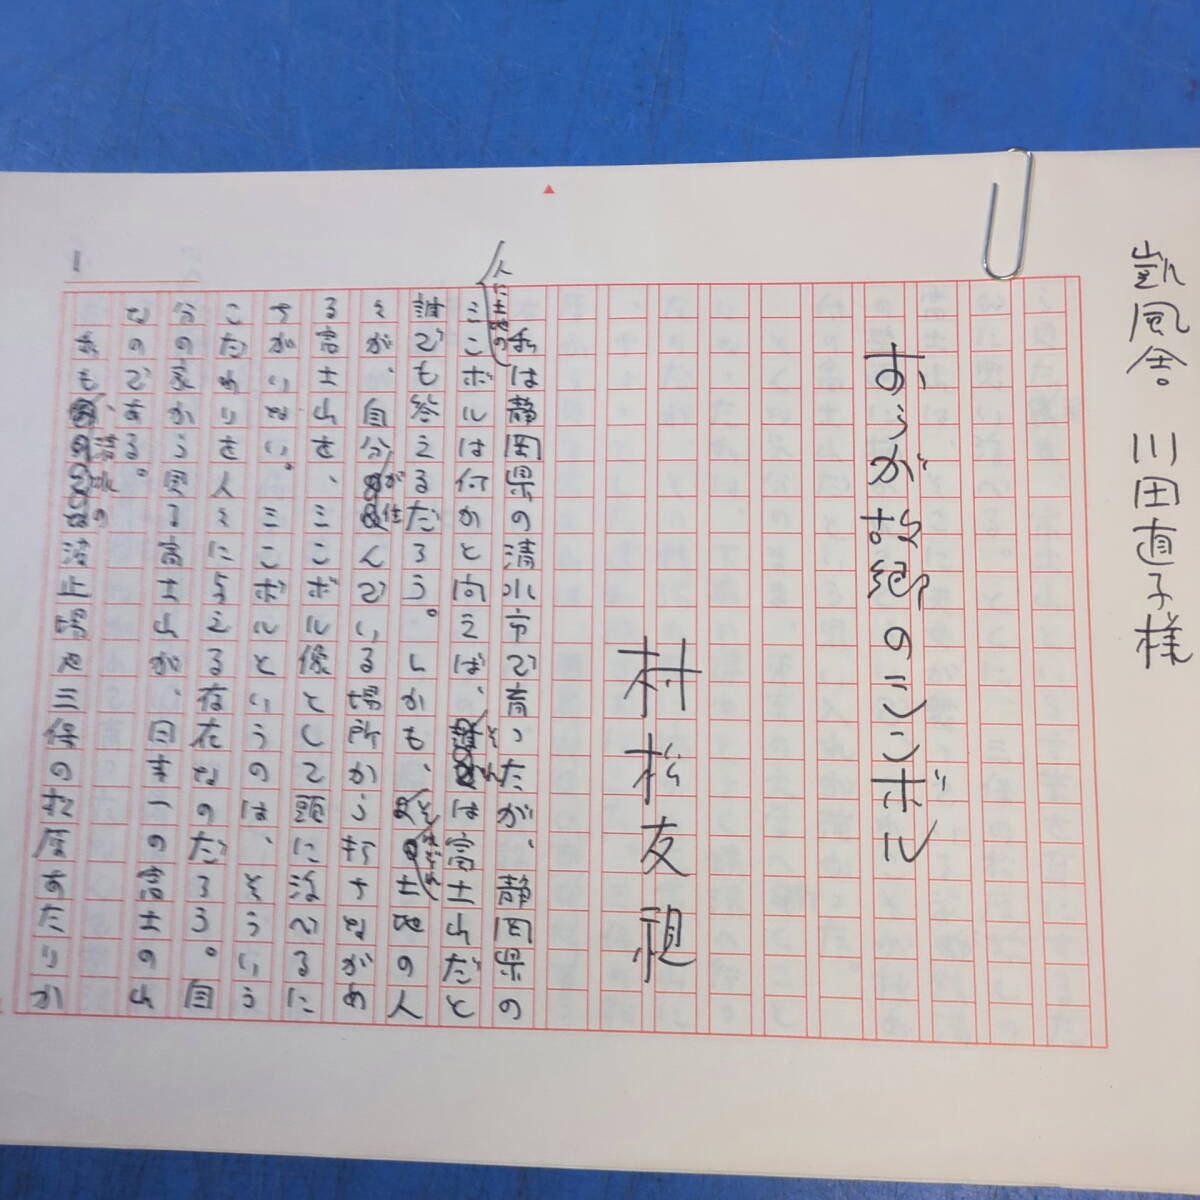 凱風舎。 川田直子様
おらが故郷のシンボル
村松友視
1
私は静岡県の清水市で育ったが、静岡県の
人に土地の
シンボルは何かと問えば、それは富士山だと
誰でも答えるだろう。しかも、それぞれ土地の人
々が、自分が住んでいる場所から打ちながめ
る富士山を、シンボル像として頭に浮べるに
ちがいない。シンボルというのは、そういう
こだわりを人々に与える存在なのだろう。自
分の家から見る富士山が、日本一の富士の山
なのである。
私も、清水の波止場や三保の松原あたりか